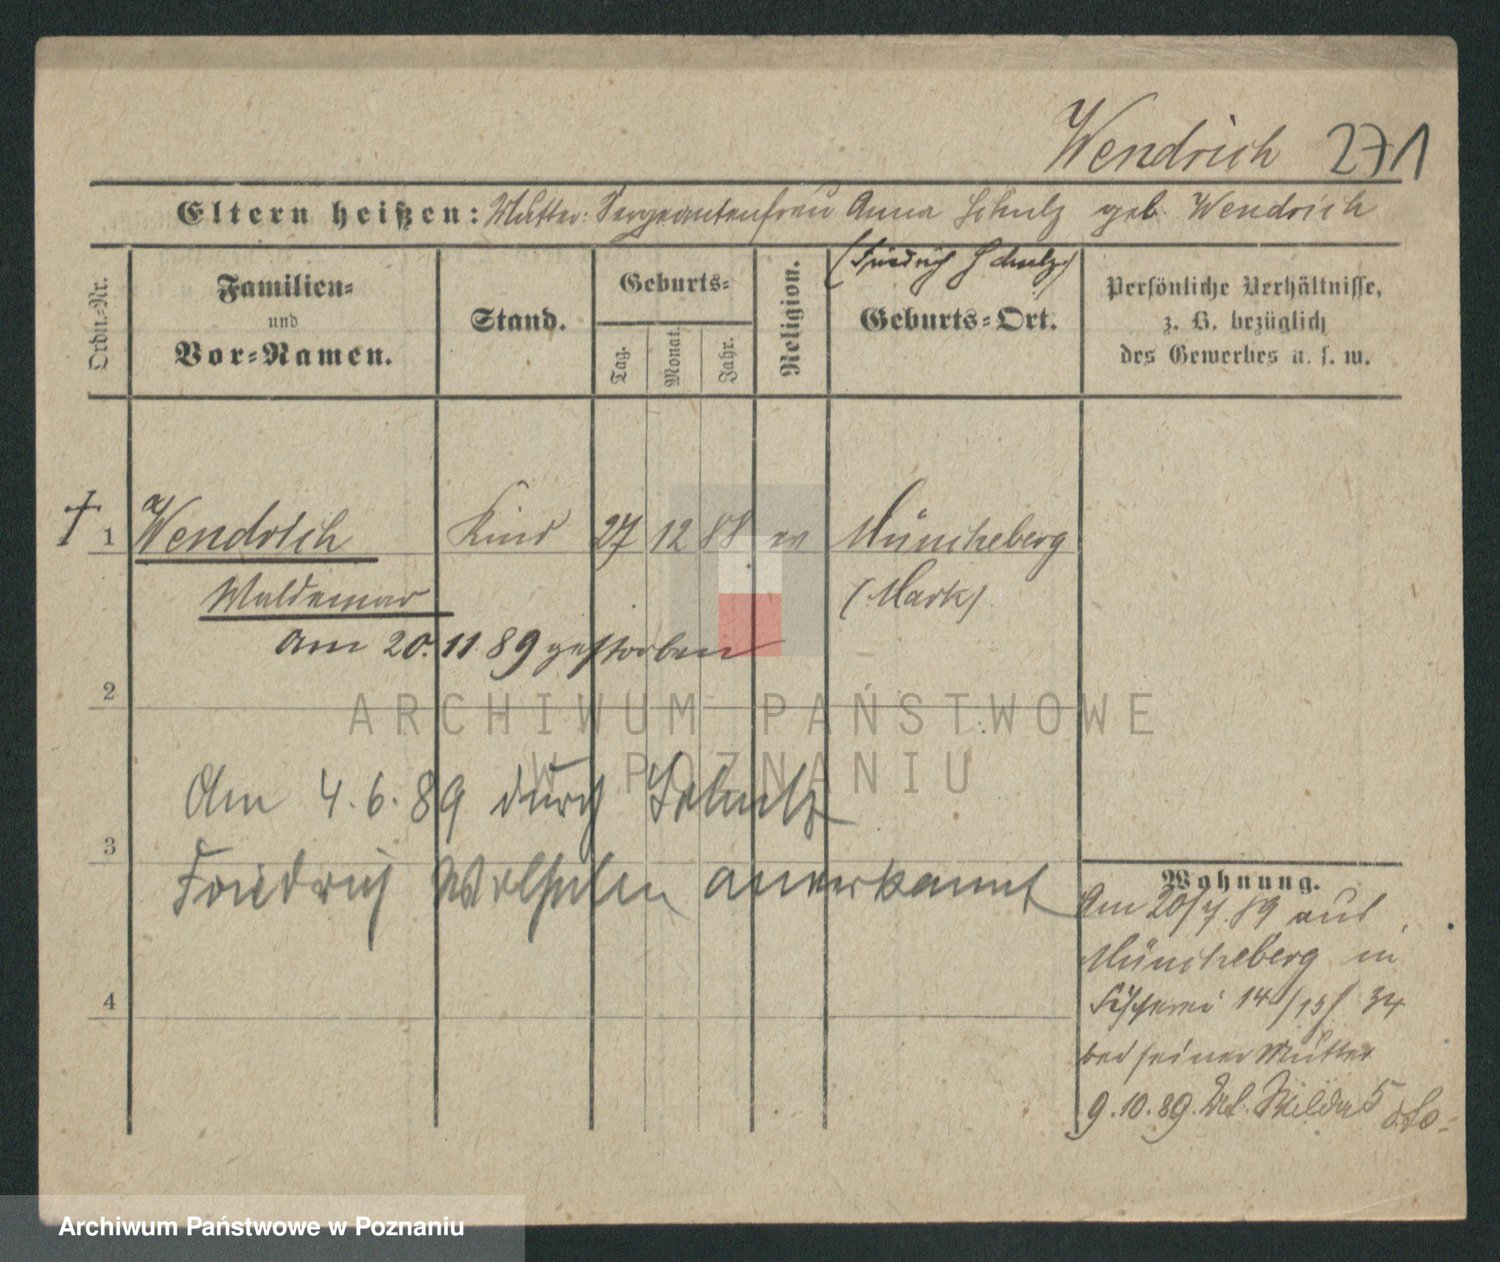 Wendrich 271
Eltern heißen: Mutter: Sergeantenfrau Anna Schulz geb. Wendrich
(Friedrich Schulz)
Ordn.-Nr.
Familien-
und
Vor-Namen.
Stand.
Geburts-
Tag.
Monat.
Jahr.
Religion.
Geburts-Ort.
Persönliche Verhältnisse,
z. B. bezüglich
des Gewerbes u. s. w.
† 1 Wendrich Kind 27 12 88 ev Müncheberg
Waldemar (Mark)
am 20. 11. 89 gestorben
2
ARCHIWUM PAŃSTWOWE
W POZNANIU
Am 4.6.89 durch Schulz
3
Friedrich Wilhelm anerkannt
Wohnung.
Am 20/4. 89 aus
Müncheberg in
4
Fischerei 14/15/ 34
bei seiner Mutter
9.10.89. Wilda 5
Archiwum Państwowe w Poznaniu